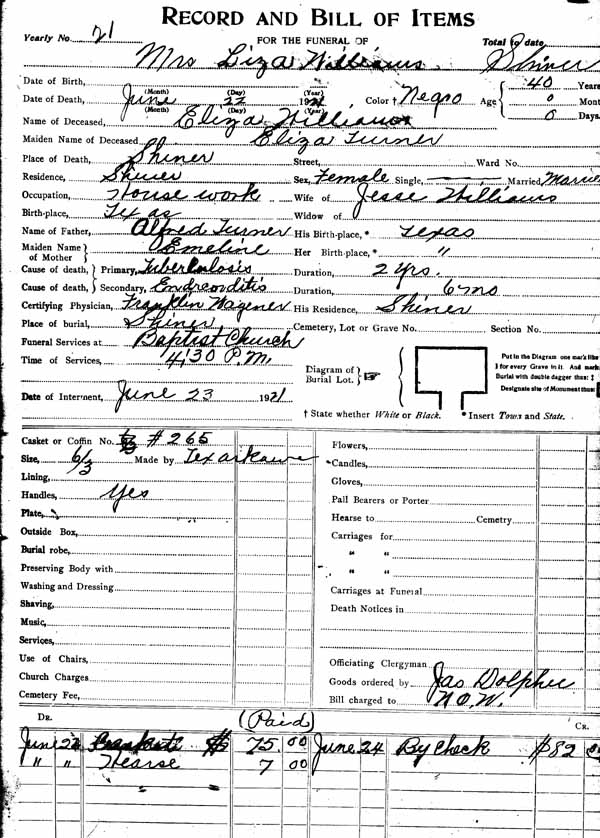 RECORD AND BILL OF ITEMS
Yearly No. 21 FOR THE FUNERAL OF Total to date
Mrs Liza Williams Shiner
Date of Birth, (Month) (Day) (Year) Age 40 Years
Date of Death, June 22 1921 Color † Negro 0 Mont
(Month) (Day) (Year) 0 Days
Name of Deceased, Eliza Williams
Maiden Name of Deceased, Eliza Turner
Place of Death, Shiner Street, Ward No.
Residence, Shiner Sex, Female Single, Married, Married
Occupation, House work Wife of Jesse Williams
Birth-place, Texas Widow of
Name of Father, Alfred Turner His Birth-place, * Texas
Maiden Name of Mother Emeline Her Birth-place, * "
Cause of death, Primary, Tuberculosis Duration, 2 yrs.
Cause of death, Secondary, Duration, 6 mo
Certifying Physician, Franklin Wagener His Residence, Shiner
Place of burial, Shiner Cemetery, Lot or Grave No. Section No.
Funeral Services at Baptist Church
Time of Services, 4:30 P.M. Diagram of Burial Lot.
Put in the Diagram one mark like
† for every Grave in it. And mark
Burial with double dagger thus: ‡
Designate site of Monument thus
Date of Interment, June 23 1921
† State whether White or Black. * Insert Town and State.
Casket or Coffin No. # 265 Flowers,
Size, 6/3 Made by Texarkana Candles,
Lining, Gloves,
Handles, Yes Pall Bearers or Porter
Plate, Hearse to Cemetry
Outside Box, Carriages for
Burial robe, " "
Preserving Body with " "
Washing and Dressing Carriages at Funeral
Shaving, Death Notices in
Music,
Services,
Use of Chairs, Officiating Clergyman
Church Charges Goods ordered by Jas
Cemetery Fee, Bill charged to
DR. (Paid) CR.
June 22 $ 75 00 June 24 By Check $82 00
" " Hearse 7 00